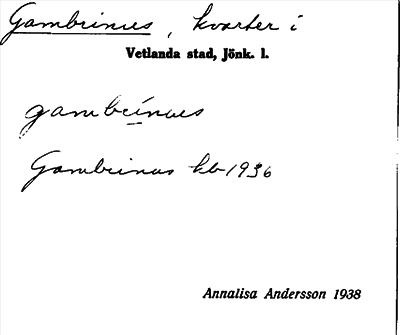 Gambrinus, kvarter i
Vetlanda stad, Jönk. l.
gambrinus
Gambrinus kb 1936
Annalisa Andersson 1938